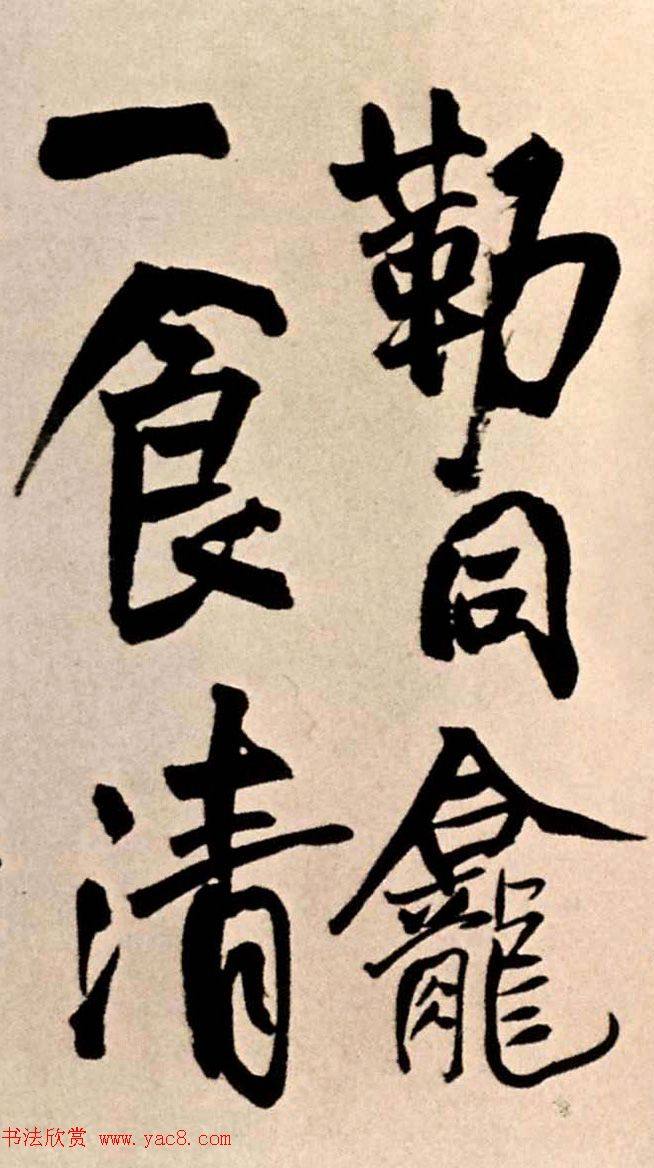 勒同龕
一食清
书法欣赏 www.yac8.com